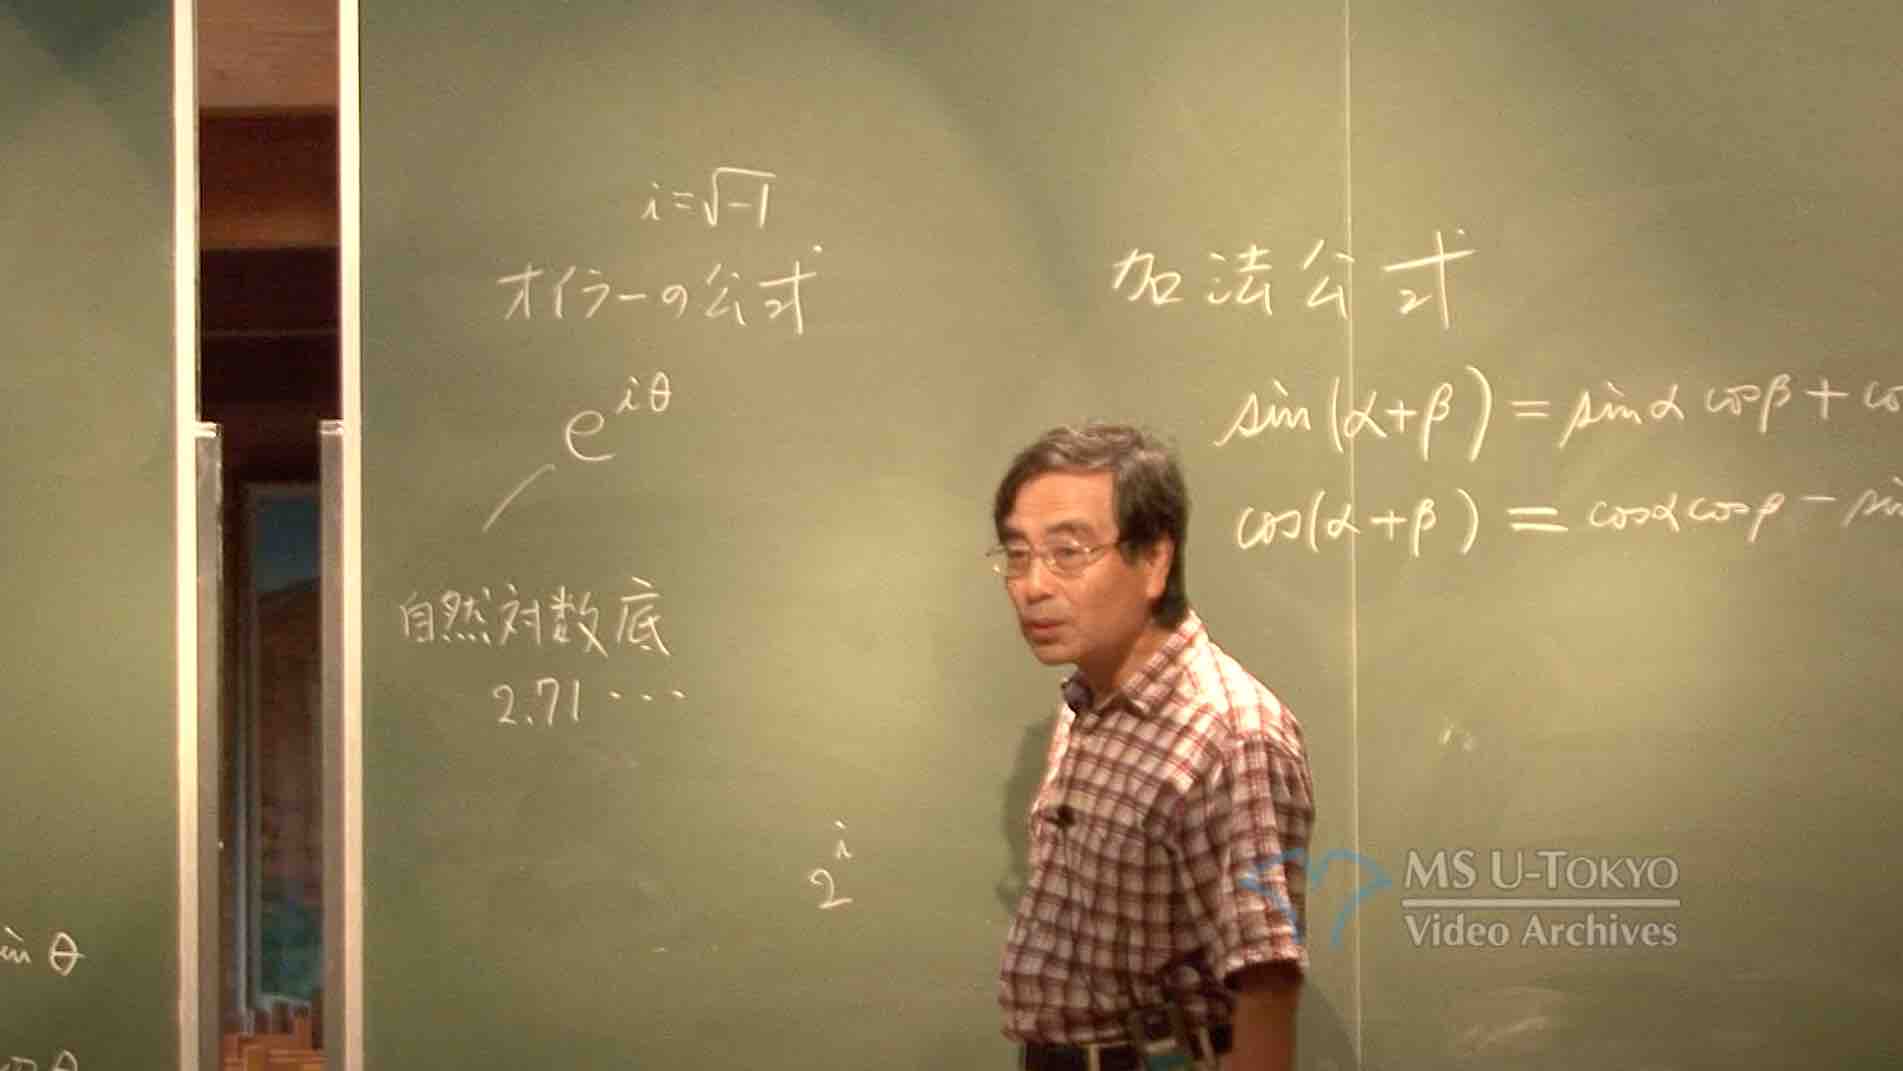 i=√-1
オイラーの公式
e^{iθ}
自然対数底
2.71・・・
2^i
加法公式
sin(α+β)=sinα cosβ+co
cos(α+β)=cosα cosβ-sin
in θ
θ
MS U-TOKYO
Video Archives